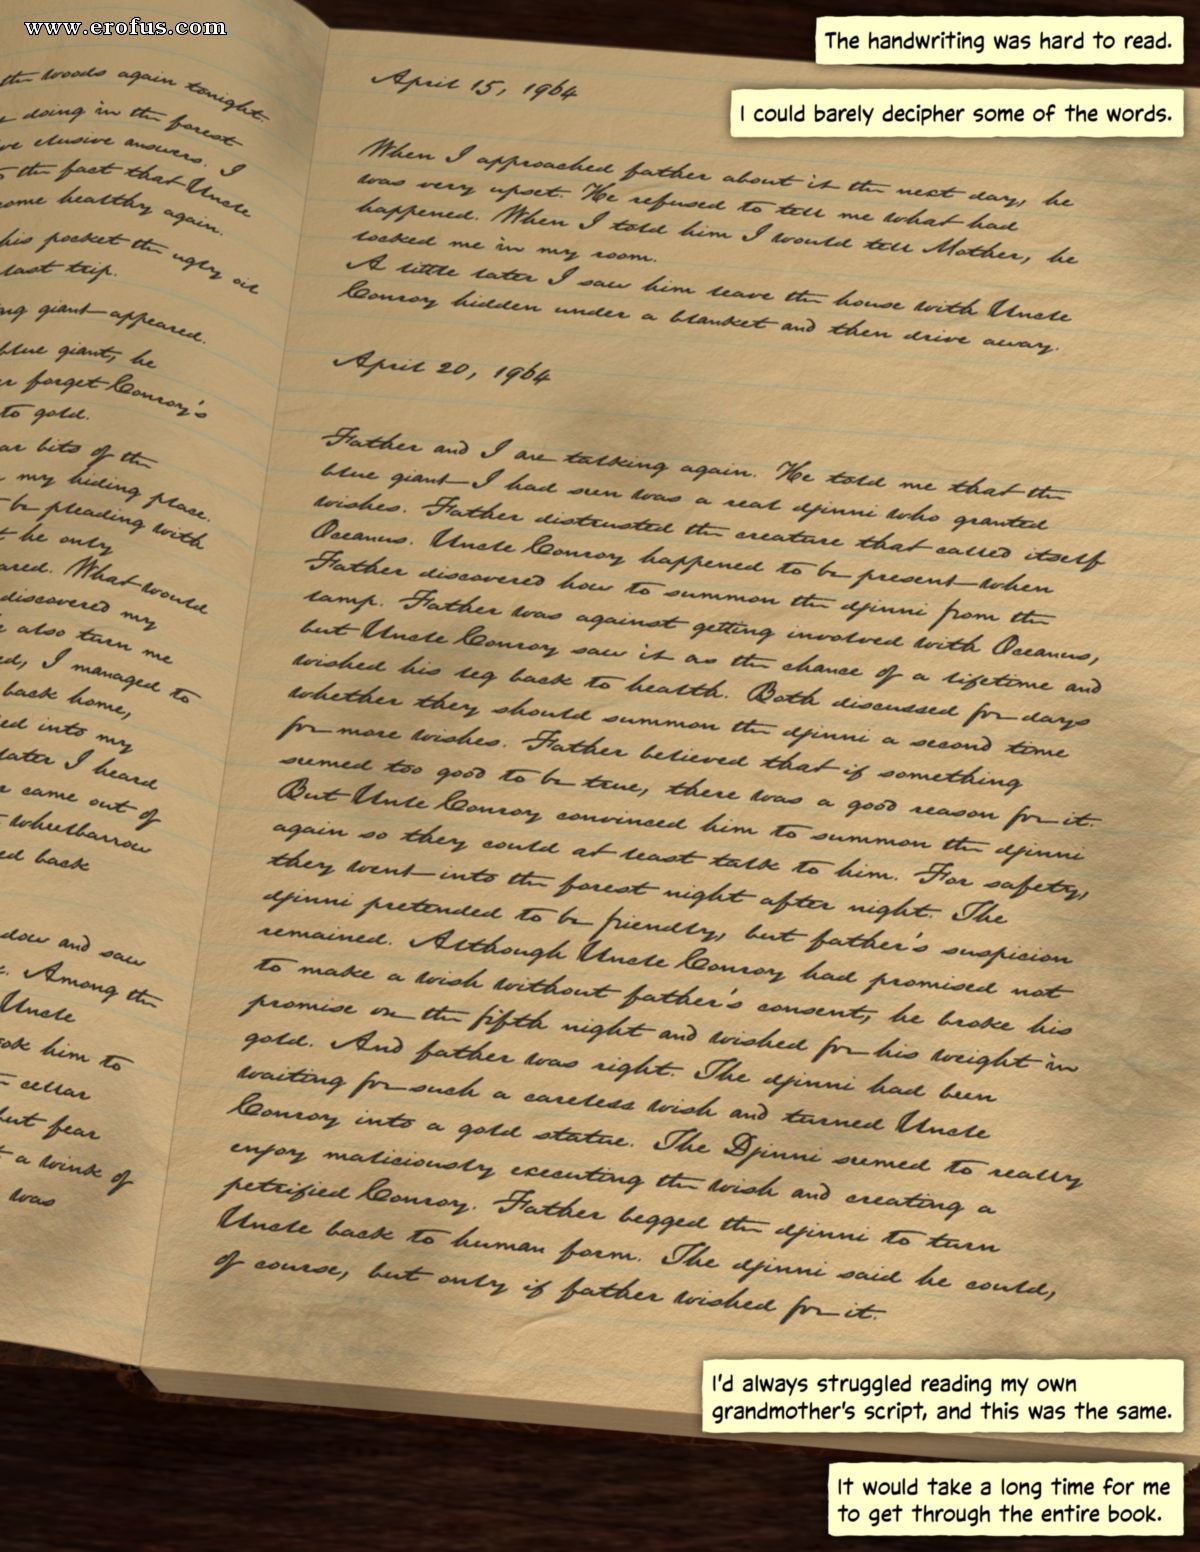 www.erofus.com
The handwriting was hard to read.
I could barely decipher some of the words.
the woods again tonight.
doing in the forest
elusive answers. I
the fact that Uncle
come healthy again.
his pocket the ugly oil
last trip.
giant appeared.
blue giant, he
forget Conroy's
to gold.
bits of the
my hiding place.
be pleading with
he only
What would
discovered my
also turn me
I managed to
back home,
into my
later I heard
came out of
wheelbarrow
back
and saw
Among the
Uncle
him to
cellar
but fear
a wink of
was
April 15, 1964
When I approached father about it the next day, he
was very upset. He refused to tell me what had
happened. When I told him I would tell Mother, he
locked me in my room.
A little later I saw him leave the house with Uncle
Conroy hidden under a blanket and then drive away.
April 20, 1964
Father and I are talking again. He told me that the
blue giant I had seen was a real djinni who granted
wishes. Father distrusted the creature that called itself
Oceanus. Uncle Conroy happened to be present when
Father discovered how to summon the djinni from the
lamp. Father was against getting involved with Oceanus,
but Uncle Conroy saw it as the chance of a lifetime and
wished his leg back to health. Both discussed for days
whether they should summon the djinni a second time
for more wishes. Father believed that if something
seemed too good to be true, there was a good reason for it.
But Uncle Conroy convinced him to summon the djinni
again so they could at least talk to him. For safety,
they went into the forest night after night. The
djinni pretended to be friendly, but father's suspicion
remained. Although Uncle Conroy had promised not
to make a wish without father's consent, he broke his
promise on the fifth night and wished for his weight in
gold. And father was right. The djinni had been
waiting for such a careless wish and turned Uncle
Conroy into a gold statue. The Djinni seemed to really
enjoy maliciously executing the wish and creating a
petrified Conroy. Father begged the djinni to turn
Uncle back to human form. The djinni said he could,
of course, but only if father wished for it.
I'd always struggled reading my own
grandmother's script, and this was the same.
It would take a long time for me
to get through the entire book.